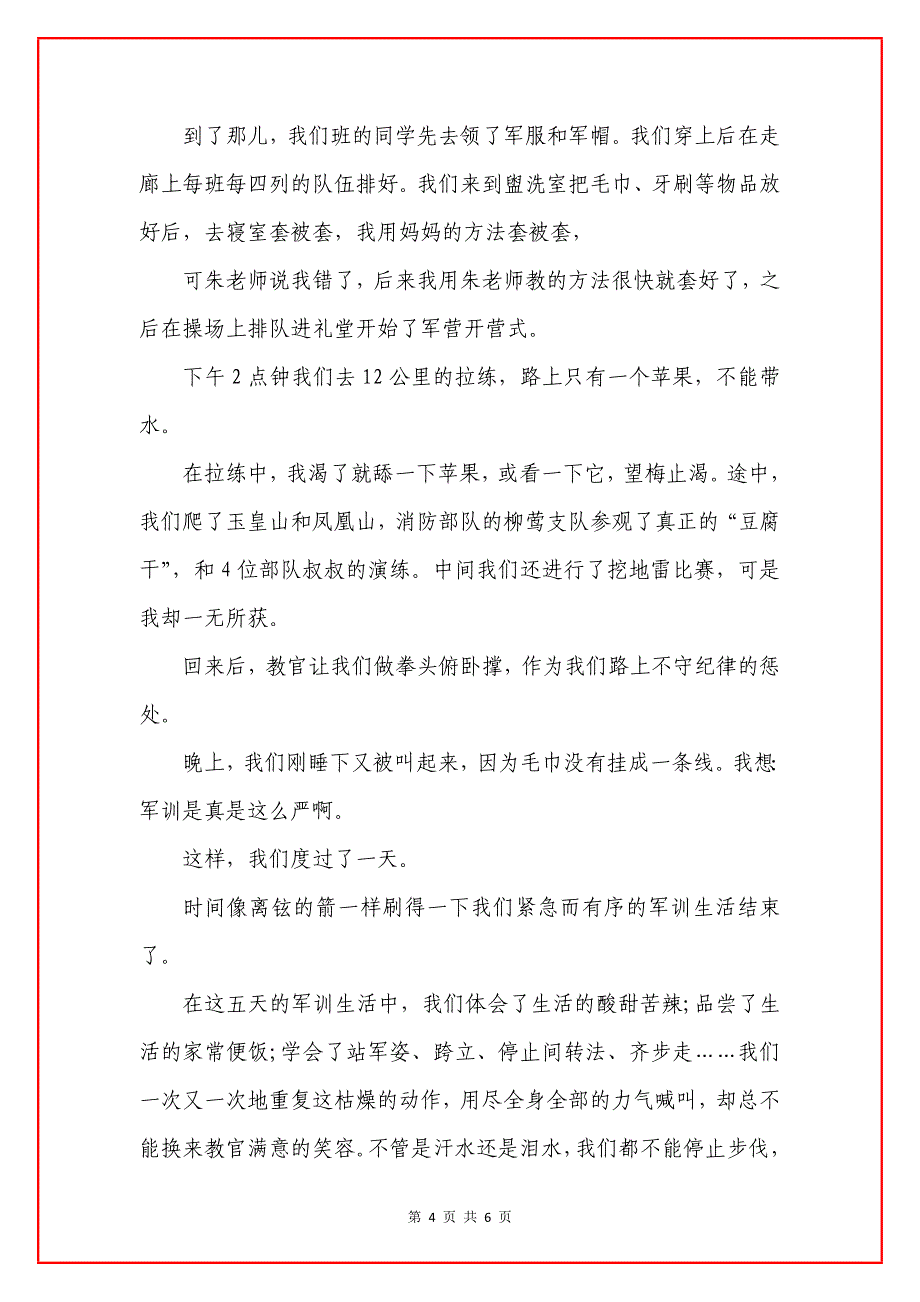 到了那儿，我们班的同学先去领了军服和军帽。我们穿上后在走
廊上每班每四列的队伍排好。我们来到盥洗室把毛巾、牙刷等物品放
好后，去寝室套被套，我用妈妈的方法套被套，
可朱老师说我错了，后来我用朱老师教的方法很快就套好了，之
后在操场上排队进礼堂开始了军营开营式。
下午 2 点钟我们去 12 公里的拉练，路上只有一个苹果，不能带
水。
在拉练中，我渴了就舔一下苹果，或看一下它，望梅止渴。途中，
我们爬了玉皇山和凤凰山，消防部队的柳莺支队参观了真正的“豆腐
干”，和 4 位部队叔叔的演练。中间我们还进行了挖地雷比赛，可是
我却一无所获。
回来后，教官让我们做拳头俯卧撑，作为我们路上不守纪律的惩
处。
晚上，我们刚睡下又被叫起来，因为毛巾没有挂成一条线。我想:
军训是真是这么严啊。
这样，我们度过了一天。
时间像离铉的箭一样刷得一下我们紧急而有序的军训生活结束
了。
在这五天的军训生活中，我们体会了生活的酸甜苦辣;品尝了生
活的家常便饭;学会了站军姿、跨立、停止间转法、齐步走……我们
一次又一次地重复这枯燥的动作，用尽全身全部的力气喊叫，却总不
能换来教官满意的笑容。不管是汗水还是泪水，我们都不能停止步伐，
第 4 页 共 6 页